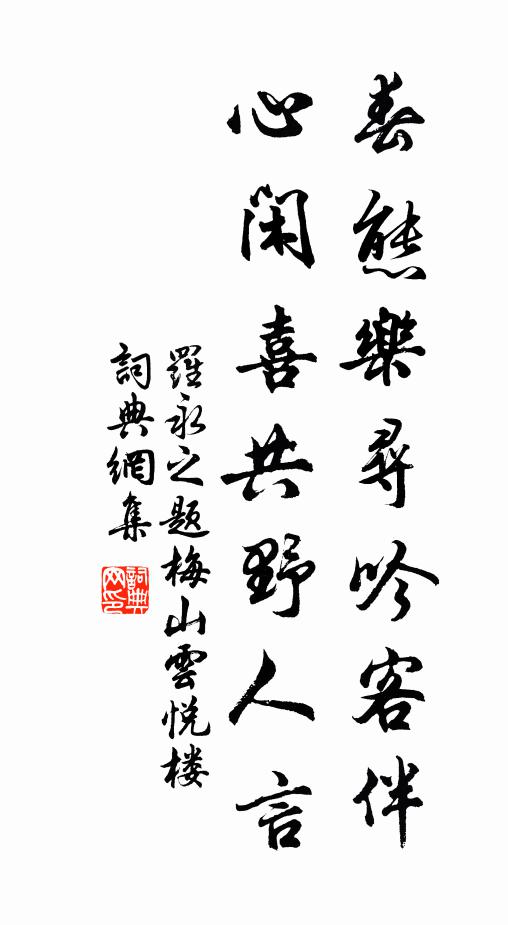 春態樂尋吟客伴
心閑喜共野人言
羅永之題梅山雲悅楼
詞典網集
詞典網印